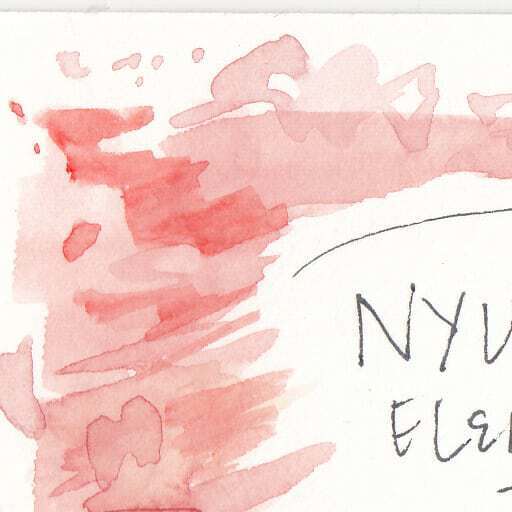 NYU
ELE